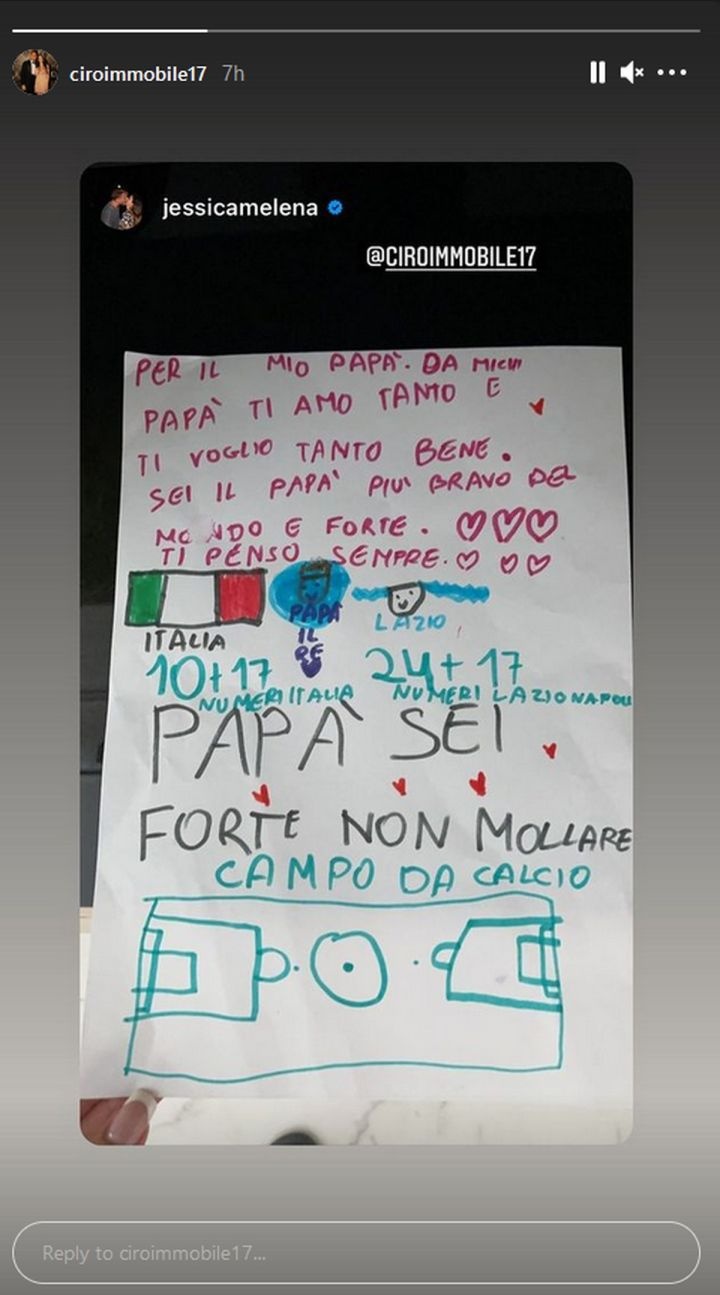 ciroimmobile17 7h
jessicamelena
@CIROIMMOBILE17
PER IL MIO PAPÀ. DA
PAPÀ TI AMO TANTO E
TI VOGLIO TANTO BENE.
SEI IL PAPA' PIU' BRAVO DEL
MONDO E FORTE.
TI PENSO SEMPRE.
PAPÀ
IL
RE
ITALIA
LAZIO
10+17
24+17
NUMERI ITALIA
NUMERI LAZIO NAPOLI
PAPA' SEI
FORTE NON MOLLARE
CAMPO DA CALCIO
Reply to ciroimmobile17...